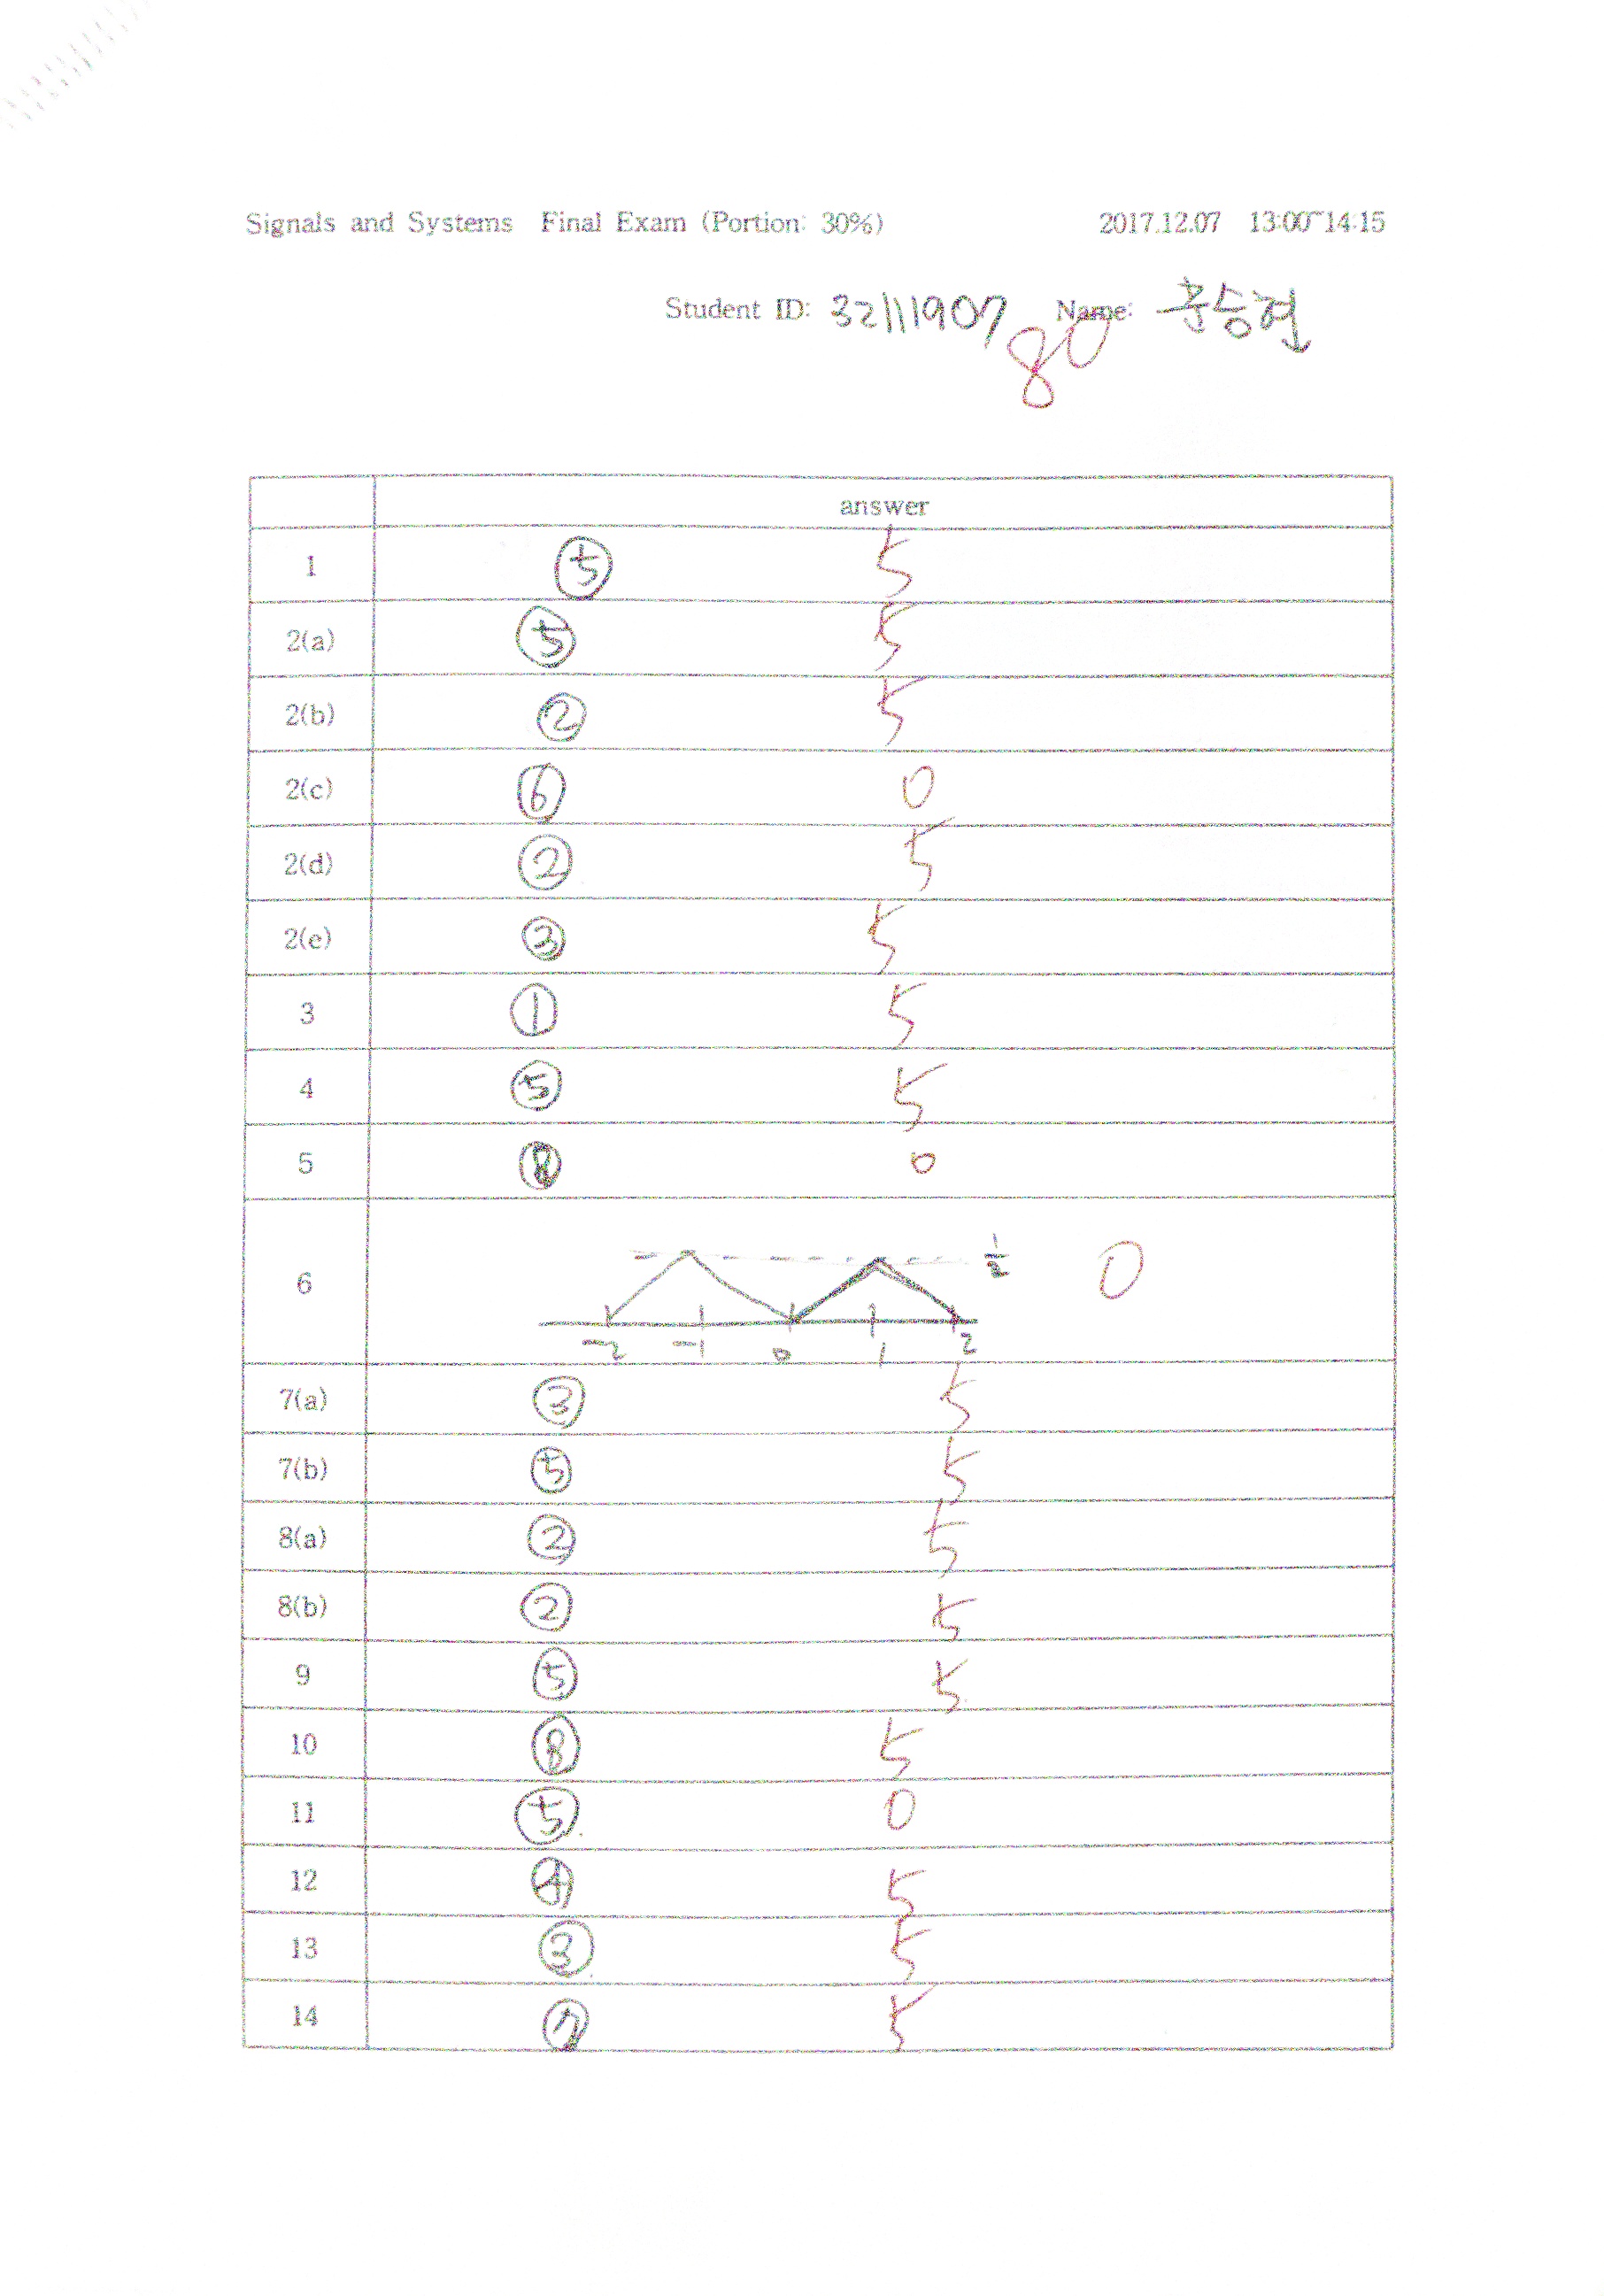 Signals and Systems Final Exam (Portion: 30%) 2017.12.07 13:00~14:15
Student ID: 32111907 Name:
80
answer
1 ⑤ 5
2(a) ⑤ 5
2(b) ② 5
2(c) ⑥ 0
2(d) ② 5
2(e) ③ 5
3 ① 5
4 ⑤ 5
5 0
6 1/2 0
-2 -1 0 1 2
7(a) ③ 5
7(b) ⑤ 5
8(a) ② 5
8(b) ② 5
9 ⑤ 5
10 ⑧ 5
11 ⑤ 0
12 ④ 5
13 ③ 5
14 5